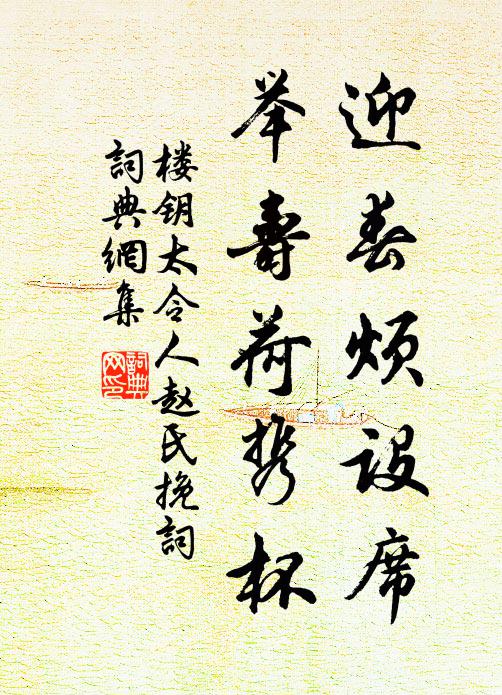 迎春烦设席
举寿荷携杯
楼钥太令人赵氏挽词
词典网集
词典网印